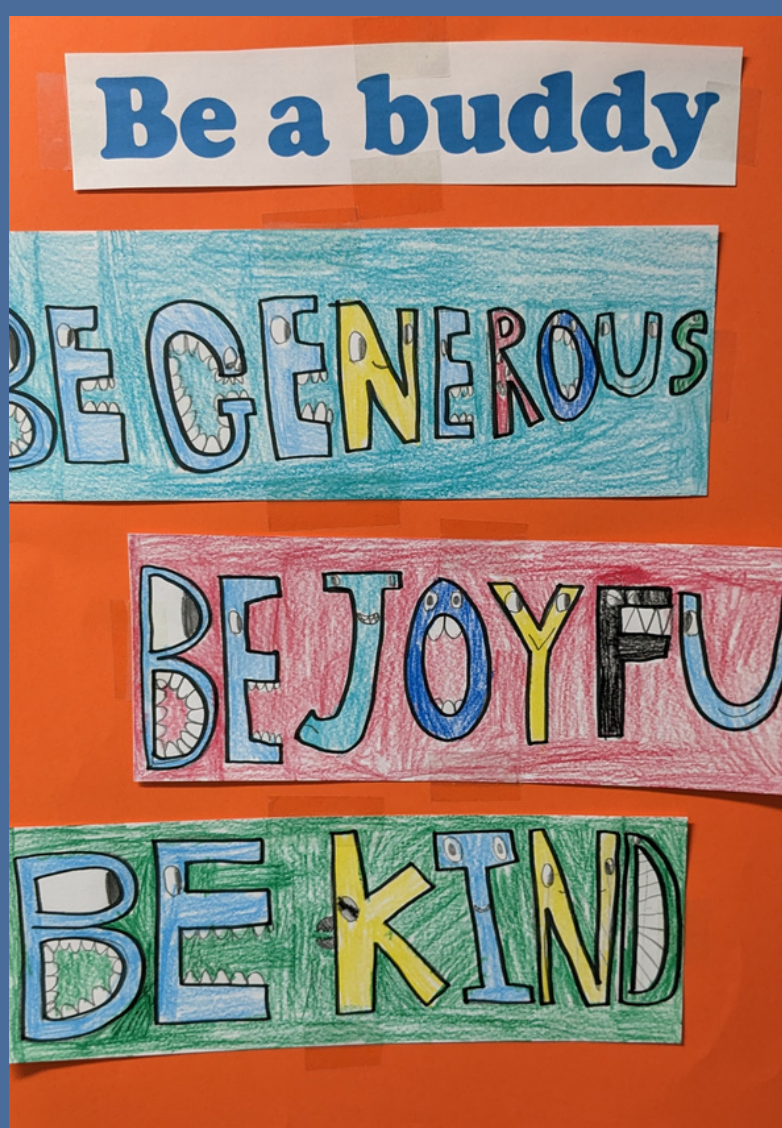 Be a buddy
BE GENEROUS
BE JOYFU
BE KIND